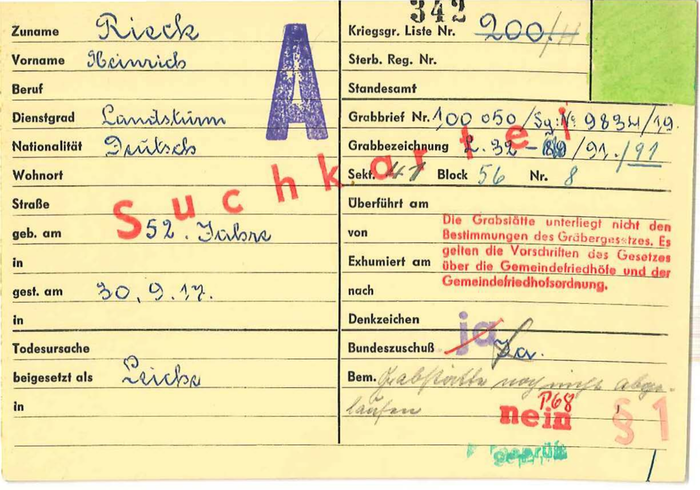 342
Zuname Rieck
Vorname Heinrich
Beruf
Dienstgrad Landsturm
Nationalität Deutsch
Wohnort
Straße
geb. am 52. Jahre
in
gest. am 30.9.17.
in
Todesursache
beigesetzt als Leiche
in
A
Suchkartei
Kriegsgr. Liste Nr. 200/
Sterb. Reg. Nr.
Standesamt
Grabbrief Nr. 100 050/Sg. No 9834/19.
Grabbezeichnung L. 32 - /91./91
Sekt. 41 Block 56 Nr. 8
Überführt am
von
Exhumiert am
nach
Die Grabstätte unterliegt nicht den
Bestimmungen des Gräbergesetzes. Es
gelten die Vorschriften des Gesetzes
über die Gemeindefriedhöfe und der
Gemeindefriedhofsordnung.
Denkzeichen
ja
Bundeszuschuß Ja.
Bem. Grabstätte noch nicht abge-
laufen
P68
nein
§ 1
geprüft